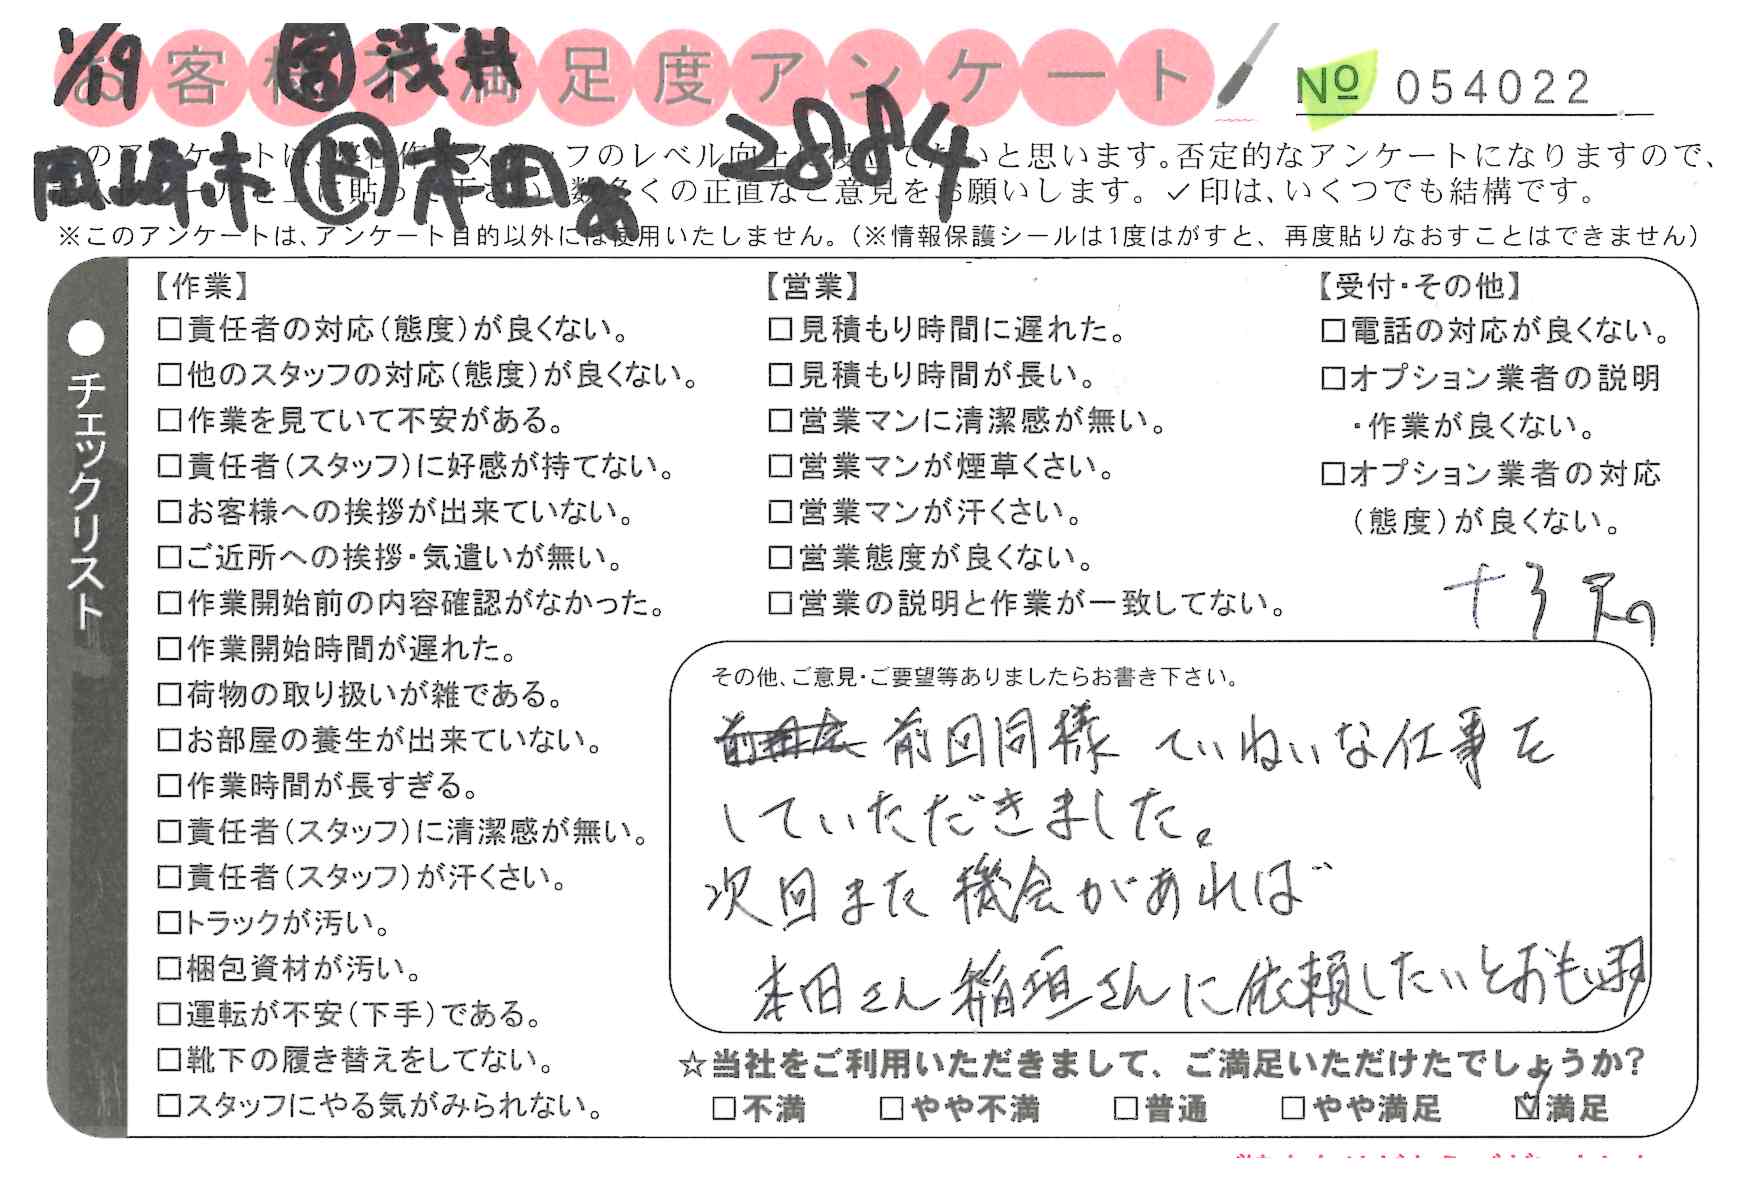 1/19 営 浅井
お客様不満足度アンケート
No 054022
岡崎市 ド 本田 あ 2884
このアンケートは、 スタッフのレベル向上 と思います。否定的なアンケートになりますので、
数多くの正直なご意見をお願いします。✓印は、いくつでも結構です。
※このアンケートは、アンケート目的以外には使用いたしません。(※情報保護シールは1度はがすと、再度貼りなおすことはできません)
●チェックリスト
【作業】
□責任者の対応(態度)が良くない。
□他のスタッフの対応(態度)が良くない。
□作業を見ていて不安がある。
□責任者(スタッフ)に好感が持てない。
□お客様への挨拶が出来ていない。
□ご近所への挨拶・気遣いが無い。
□作業開始前の内容確認がなかった。
□作業開始時間が遅れた。
□荷物の取り扱いが雑である。
□お部屋の養生が出来ていない。
□作業時間が長すぎる。
□責任者(スタッフ)に清潔感が無い。
□責任者(スタッフ)が汗くさい。
□トラックが汚い。
□梱包資材が汚い。
□運転が不安(下手)である。
□靴下の履き替えをしてない。
□スタッフにやる気がみられない。
【営業】
□見積もり時間に遅れた。
□見積もり時間が長い。
□営業マンに清潔感が無い。
□営業マンが煙草くさい。
□営業マンが汗くさい。
□営業態度が良くない。
□営業の説明と作業が一致してない。
【受付・その他】
□電話の対応が良くない。
□オプション業者の説明
・作業が良くない。
□オプション業者の対応
(態度)が良くない。
その他、ご意見・ご要望等ありましたらお書き下さい。
前回同様 ていねいな仕事を
していただきました。
次回また機会があれば
本田さん稲垣さんに依頼したいとおもいます
☆当社をご利用いただきまして、ご満足いただけたでしょうか?
□不満 □やや不満 □普通 □やや満足 ☑満足